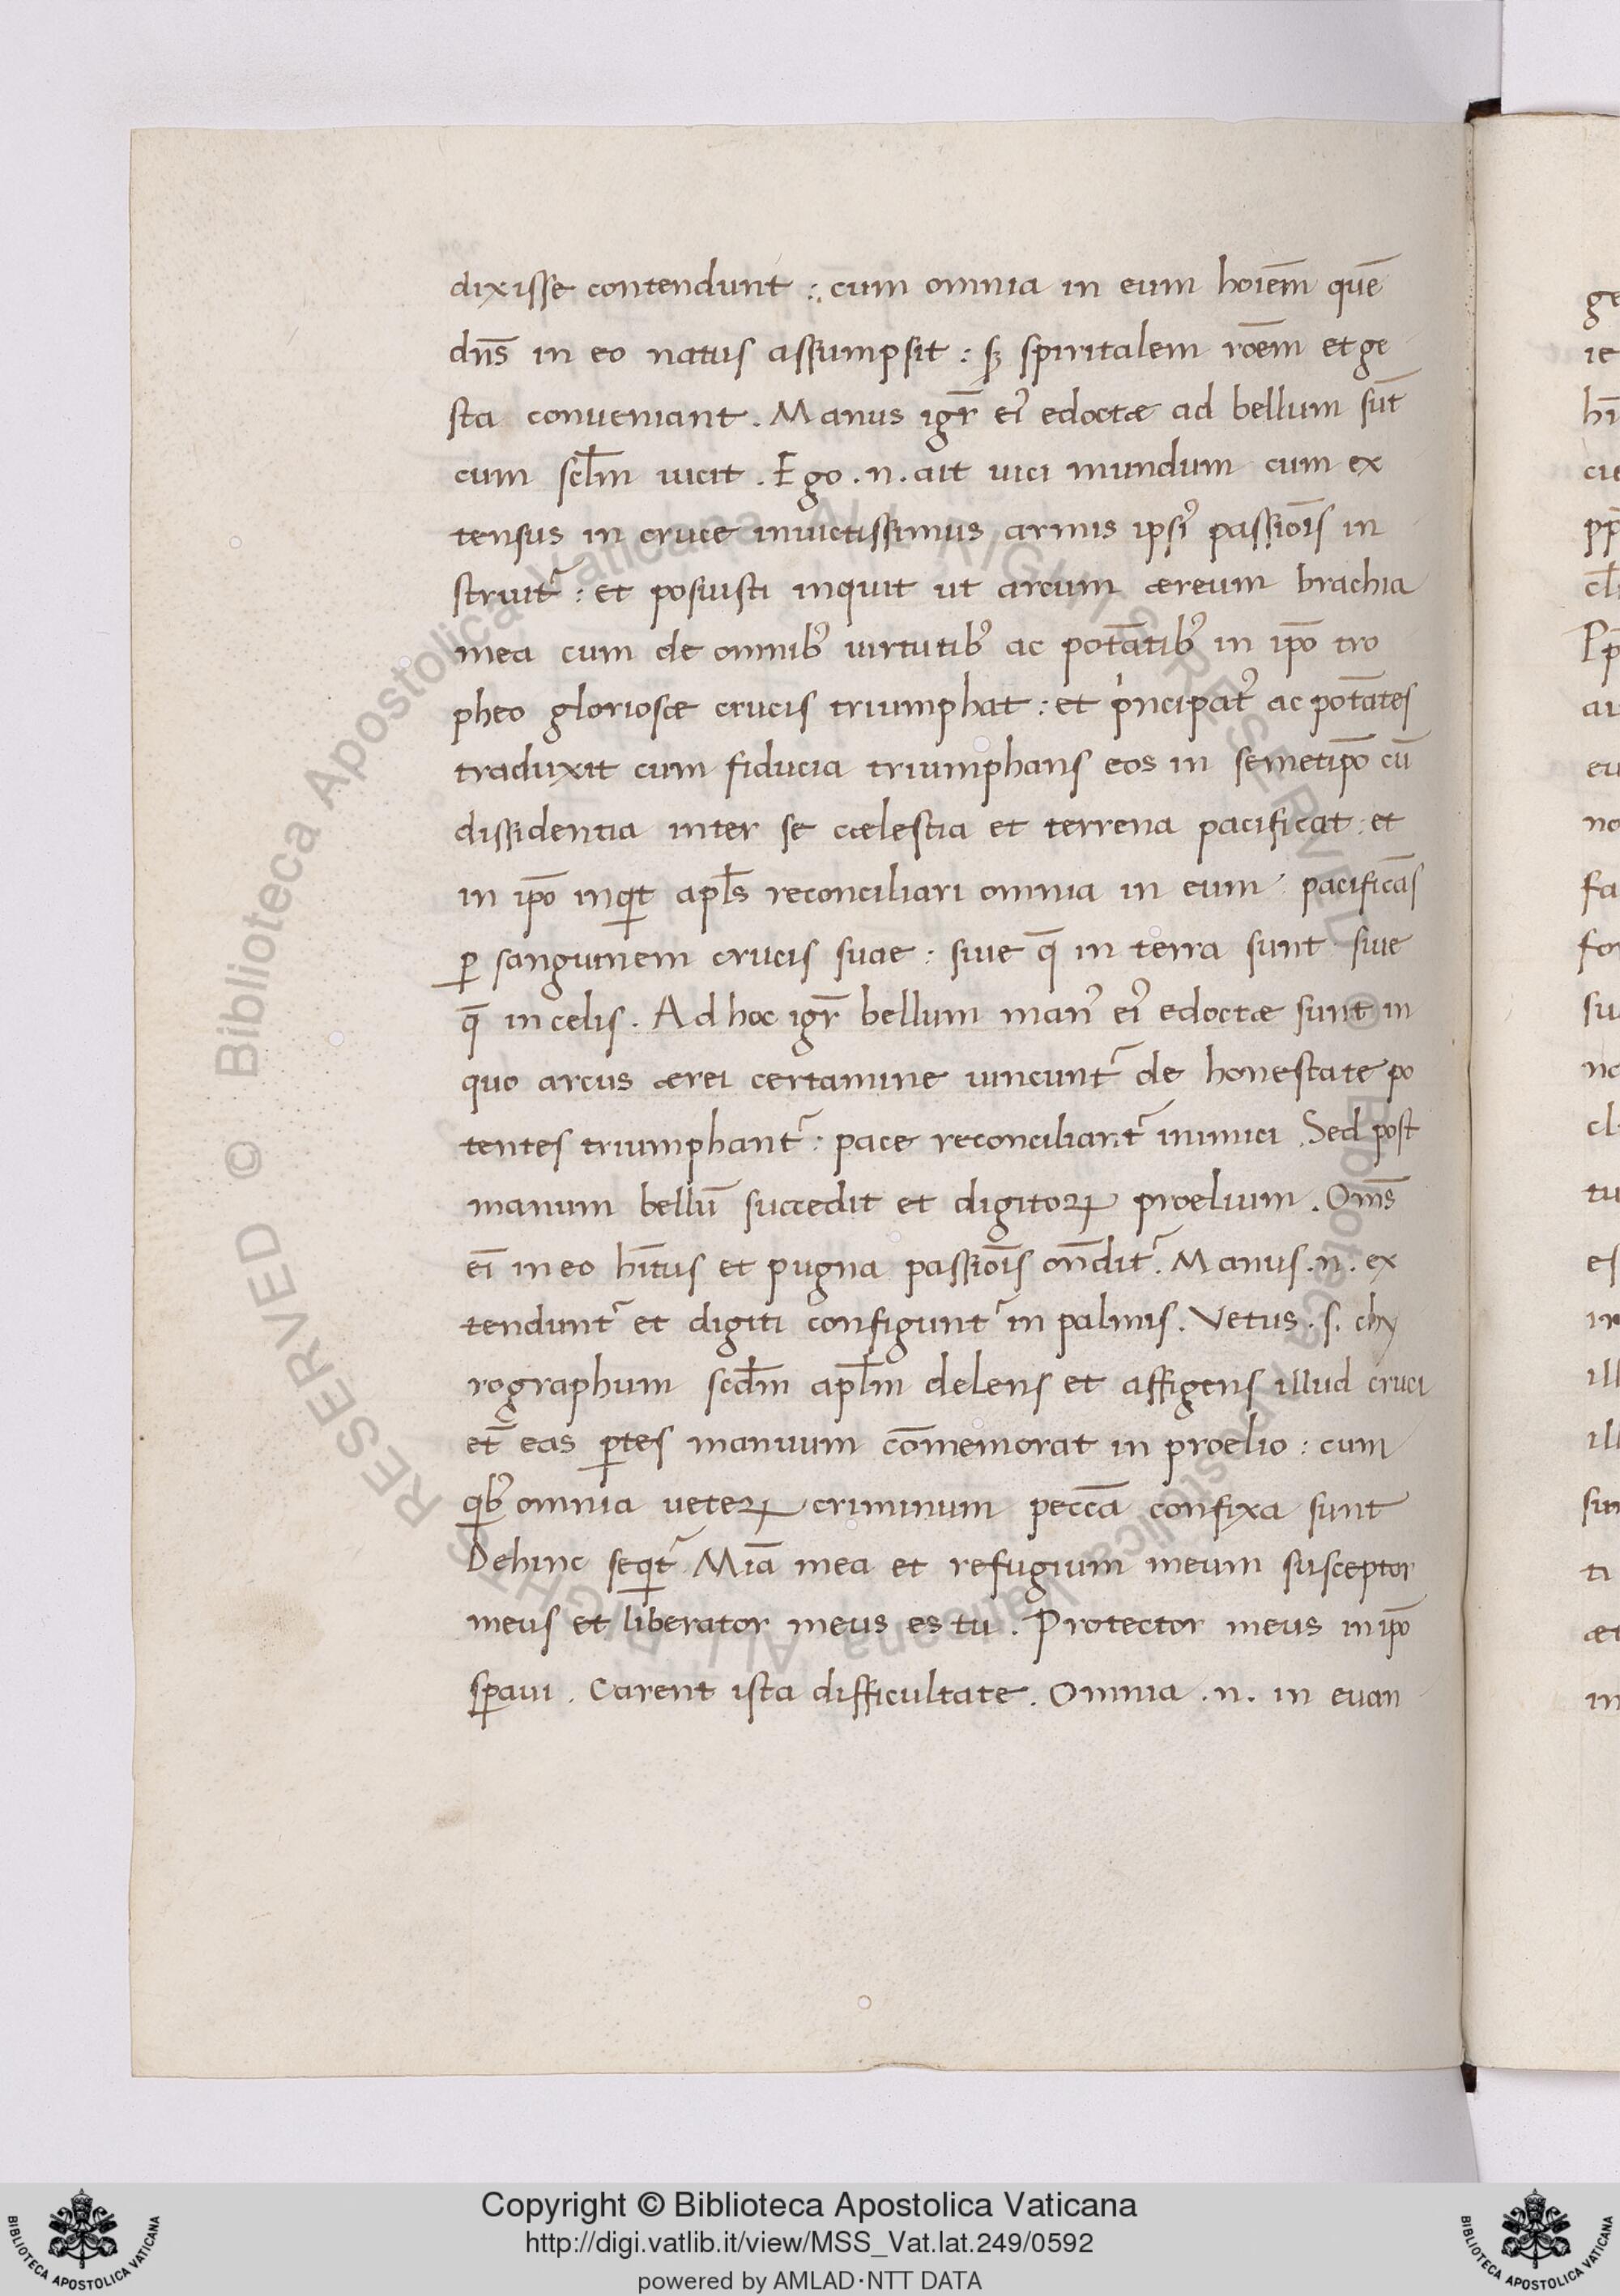 dixisse contendunt : cum omnia in eum hoı̅em que̅
dn̅s in eo natus assumpsit : sꝫ spiritalem ro̅em et ge
sta conueniant . Manus igr̅ ei᾽ edoctæ ad bellum su̅t
cum scl̅m uicit . Ego . n . ait uici mundum cum ex
tensus in cruce inuictissimus armis ipsi᾽ passio̅is in
struit᾽ : et posuisti inquit ut arcum æreum brachia
mea cum de omnib᾽ uirtutib᾽ ac pot̅atib᾽ in ip̅o tro
pheo gloriosæ crucis triumphat : et pͥncipat᾽ ac pot̅ates
traduxit cum fiducia triumphans eos in semetip̅o cu̅
dissidentia inter se cælestia et terrena pacificat : et
in ip̅o inqͥt apl̅s reconciliari omnia in eum pacifica̅s
ꝑ sanguinem crucis suae : siue q̅ in terra sunt siue
q̅ in celis . Ad hoc igr̅ bellum man᾽ ei᾽ edoctæ sunt in
quo arcus ærei certamine uincunt᾽ de honestate po
tentes triumphant᾽ : pace reconciliant᾽ inimici . Sed post
manum bellu̅ succedit et digitoꝝ proelium . Om̅s
ei̅ in eo hi̅tus et pugna passio̅is on̅dit᾽ . Manus . n . ex
tendunt᾽ et digiti configunt᾽ in palmis . Vetus . s . chy
rographum scd̅m apl̅m delens et affigens illud cruci
et̅ eas ꝑtes manuum co̅memorat in proelio : cum
qͥb᾽ omnia ueteꝝ criminum pecc̅a confixa sunt
Dehinc seqͥt᾽ Mi̅a mea et refugium meum susceptor
meus et liberator meus es tu . Protector meus in ip̅o
sꝑaui . Carent ista difficultate . Omnia . n . in euan
ge
ie
hi̅
Copyright © Biblioteca Apostolica Vaticana
http://digi.vatlib.it/view/MSS_Vat.lat.249/0592
powered by AMLAD·NTT DATA
BIBLIOTECA APOSTOLICA VATICANA
BIBLIOTECA APOSTOLICA VATICANA